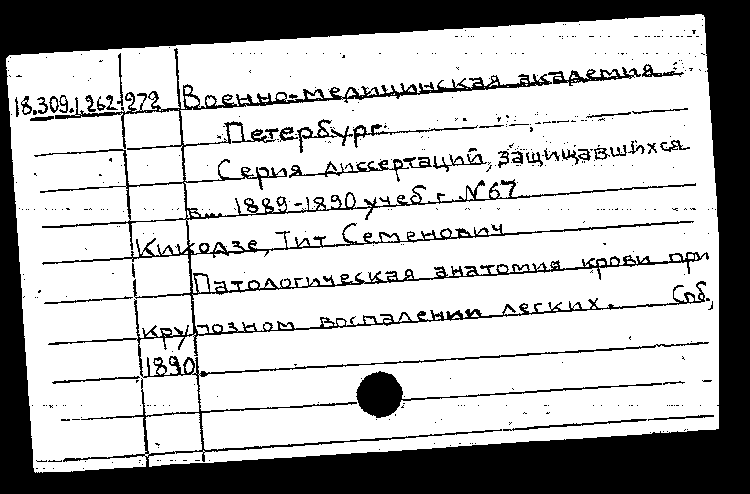 18.309.1.262-272 Военно-медицинская академия.
Петербург.
Серия диссертаций, защищавшихся
в... 1889-1890 учеб. г. №67
Кикодзе, Тит Семенович
Патологическая анатомия крови при
крупозном воспалении легких. Спб,
1890.